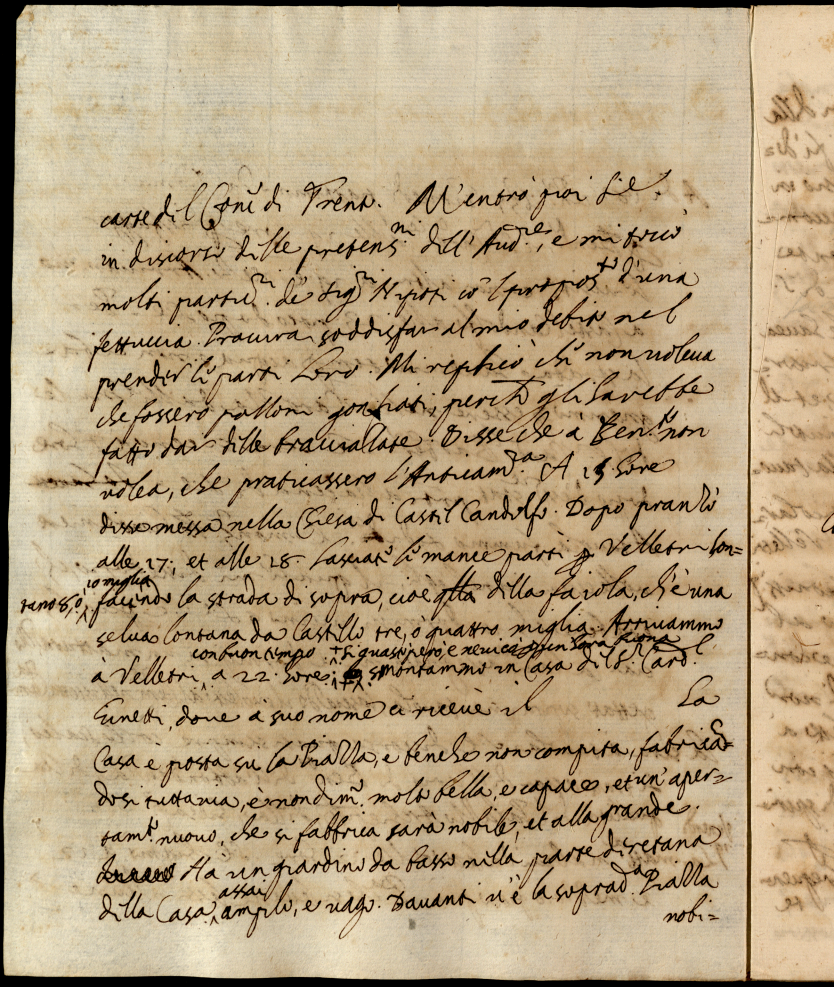 carte del Conc. di Trent. M'entrò poi S. E.
in discorso delle pretens.ni dell'Aud.re, e mi toccò
molti particu.ri de Sig.ri Nipoti co' l proposto d'una
fettuccia. Procurai soddisfar al mio debito nel
prender le parti Loro. Mi replicò che non voleva
che fossero palloni gonfiati, perche gli sarebbe
fatto dar delle bracciallate. Disse che à Ben.to non
volea, che praticassero l'Anticam.ra A 15. hore
disse messa nella Chiesa di Castel Candolfo. Dopo pranzo
alle 17., et alle 18. lasciate le mancie partì p Velletri lon=
tano 8, o 10 miglia facendo la strada di sopra, cioe qlla della faiola, ch'è una
selva lontana da Castello tre, o quattro miglia. Arrivammo
con buon tempo
à Velletri a 22. hore smontammo in Casa del S.r Card.l
Ginetti, dove à suo nome ci riceuè il La
Casa è posta su la Piazza, e benche non compita, fabrican=
dosi tuttavia, è nondim.o molto bella, e capace, et un'apar=
tam.to nuovo, che si fabbrica sarà nobile, et alla grande.
Ha un giardino da basso nella parte diretana
della Casa, assai amplo, e vago. Davanti v'è la soprad.a Piazza
nobi=